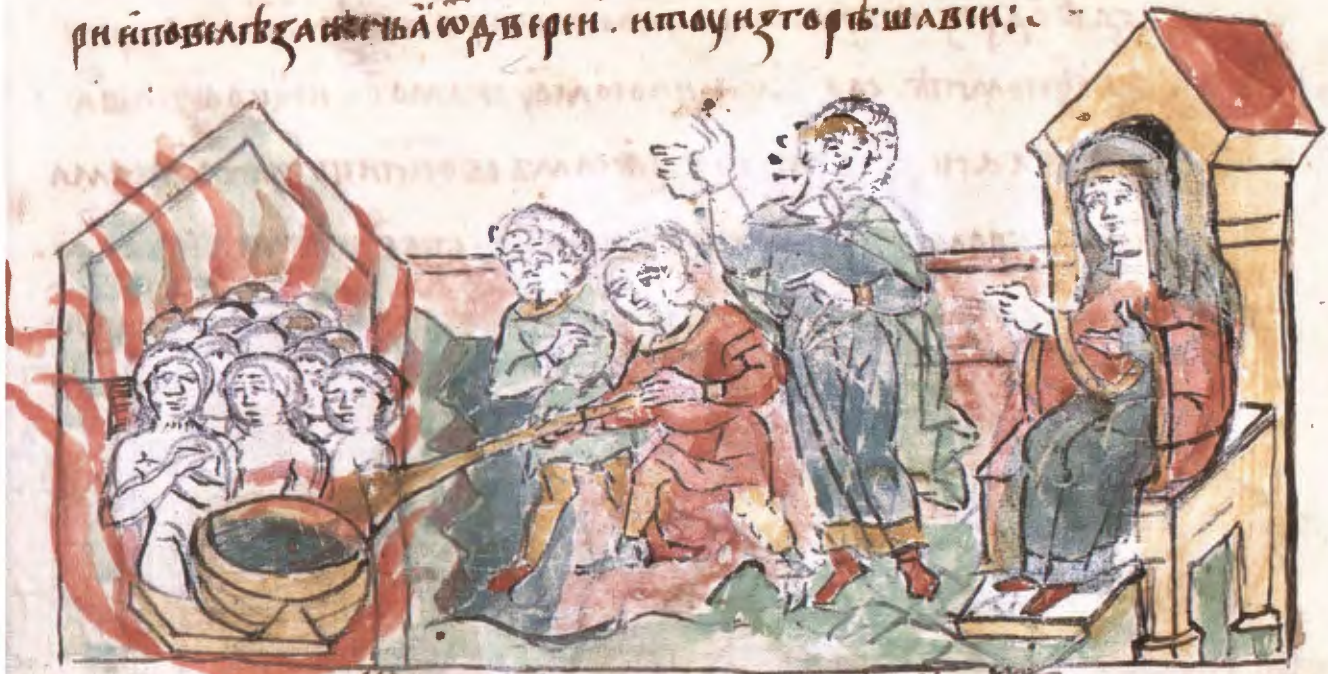 ри и повелѣ зажечьꙗ ѿ двереи . и тоу изгорѣша вси :~